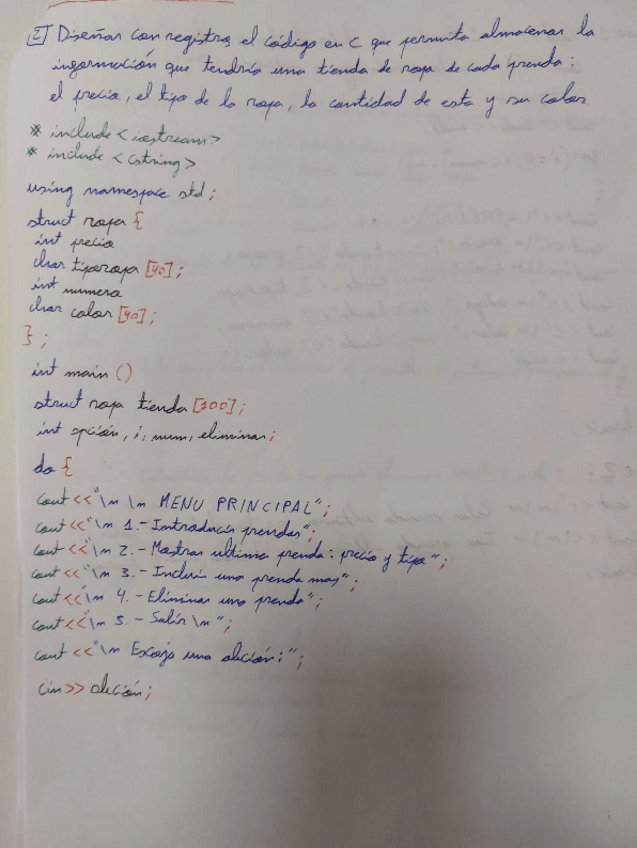 2 Diseñar con registros el código en C que permita almacenar la
información que tendría una tienda de ropa de cada prenda:
el precio, el tipo de la ropa, la cantidad de esta y su color.
* include <iostream>
* include <cstring>
using namespace std;
struct ropa {
int precio
char tiporopa [40];
int numero
char color [40];
};
int main ()
struct ropa tienda [100];
int opción, i, num, eliminar;
do {
cout <<"\n \n MENU PRINCIPAL";
cout <<"\n 1.- Introducir prendas";
cout <<"\n 2.- Mostrar ultima prenda: precio y tipo";
cout <<"\n 3.- Incluir una prenda mas";
cout <<"\n 4.- Eliminar una prenda";
cout <<"\n 5.- Salir \n";
cout <<"\n Escoja una opción:";
cin >> opción;